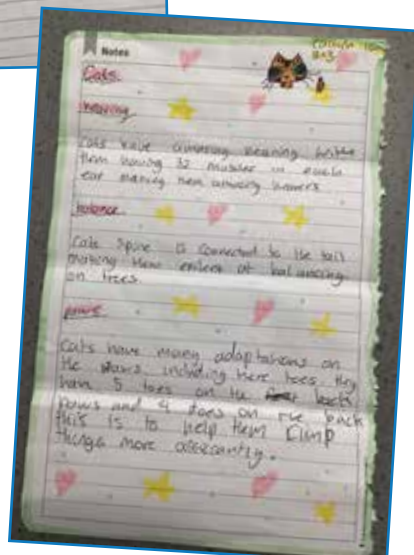 Notes
Cats.
hearing
Cats have amazing hearing with
them having 32 muscles in each
ear making them amazing hunters
balance.
Cats spine is connected to the tail
making them at balancing
on trees.
paws
Cats have many adaptations on
the paws, including there toes they
have 5 toes on the
paws and 4 toes on the back
this is to help them
things more